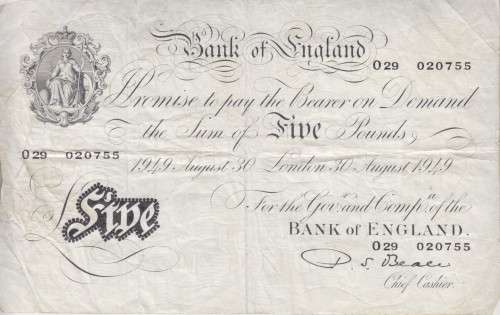 Bank of England
O29 020755
I Promise to pay the Bearer on Demand
the Sum of Five Pounds
O29 020755
1949 August 30 London 30 August 1949
For the Govr. and Compa. of the
£ Five
BANK of ENGLAND.
O29 020755
P. S. Beale
Chief Cashier.